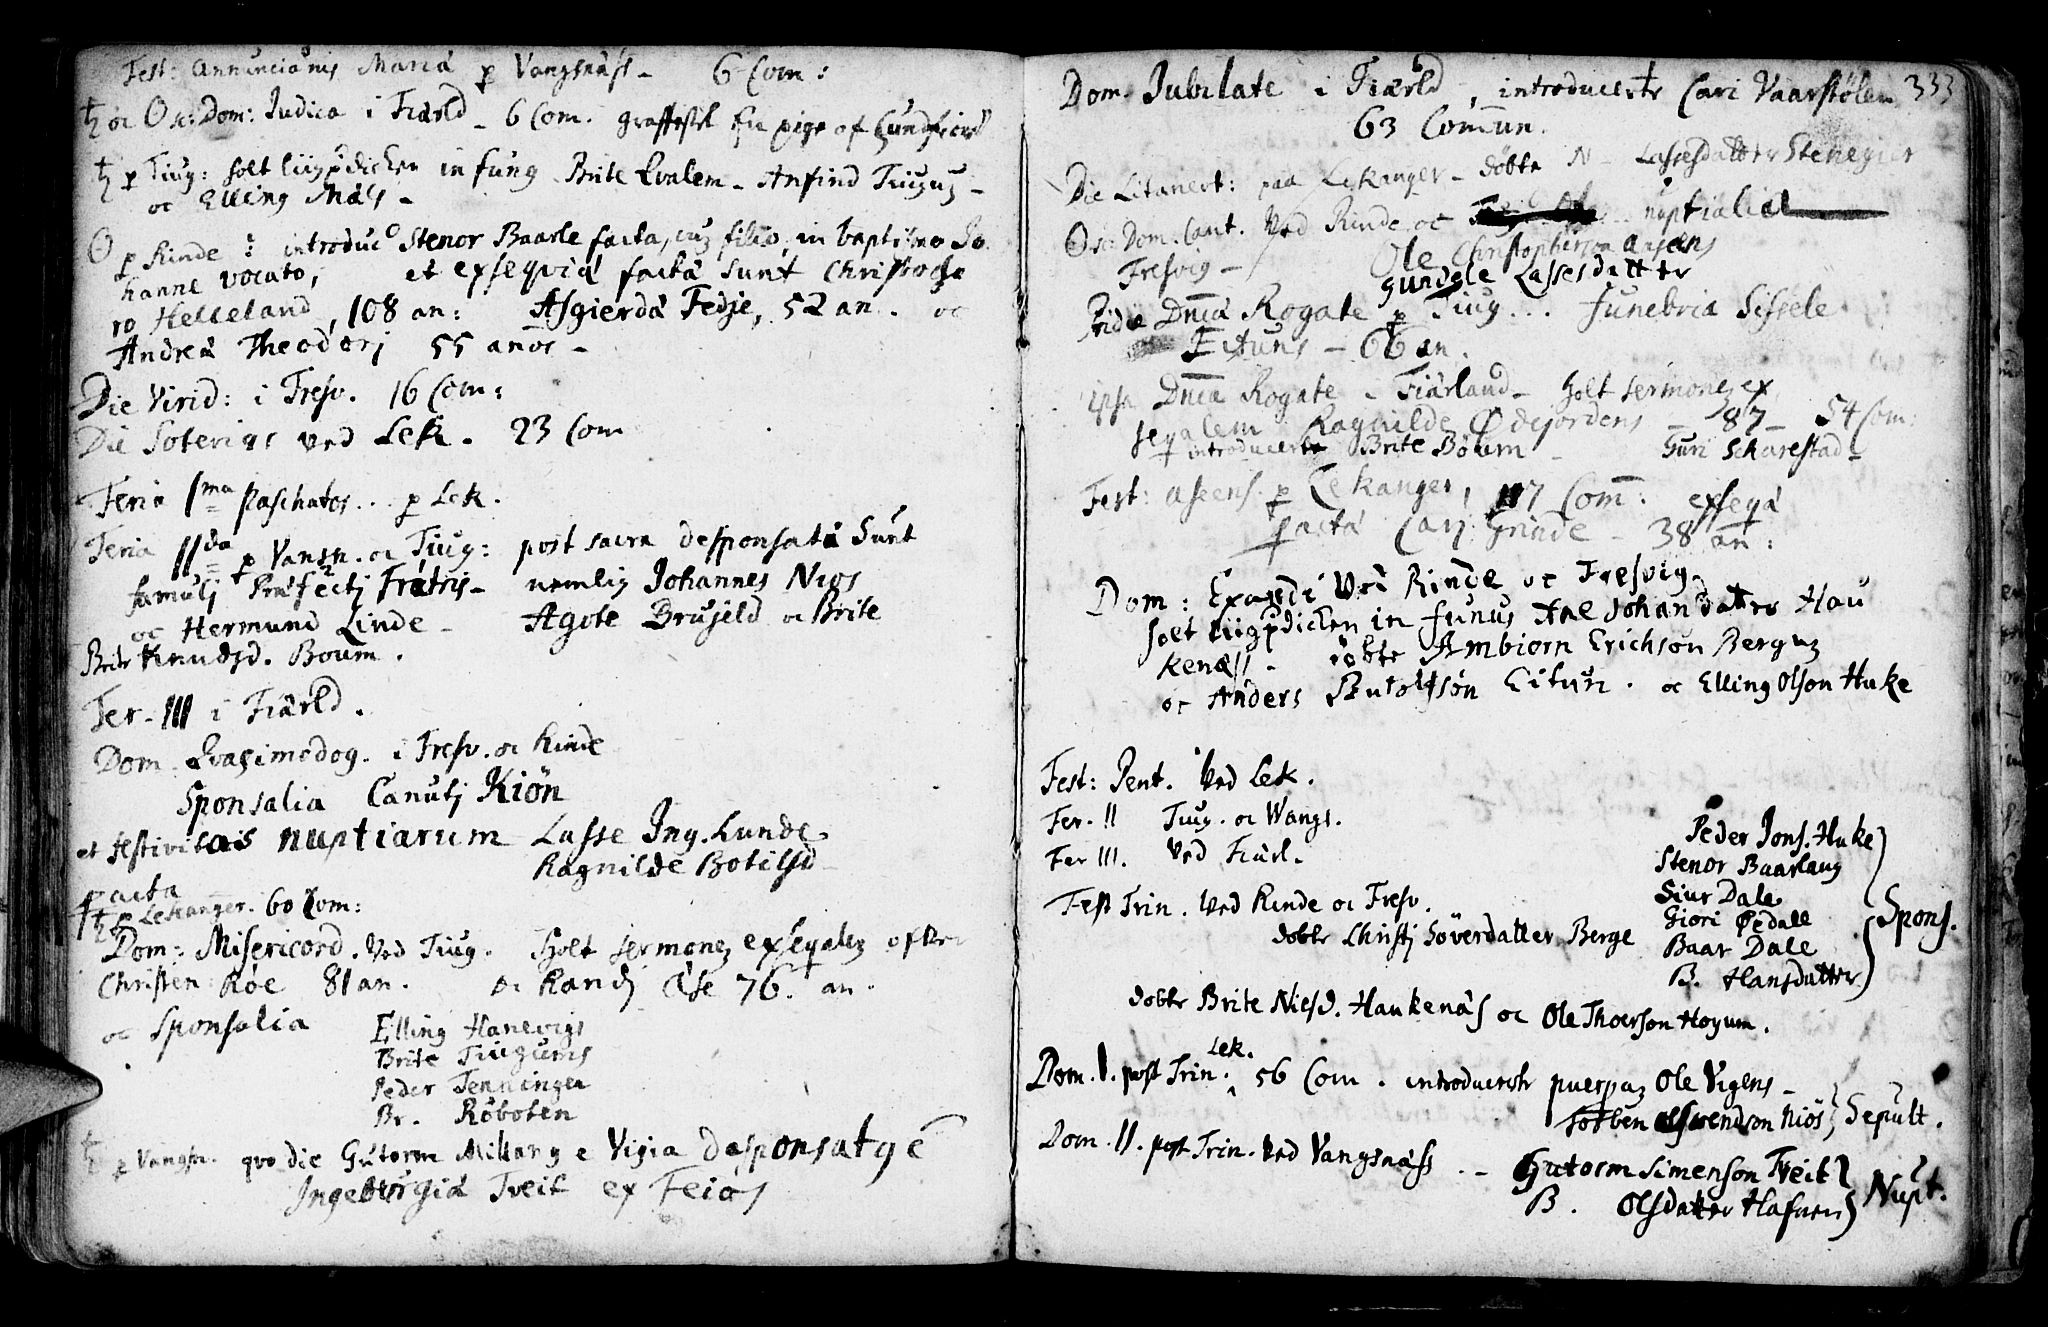 Fest: Annunciãnis Mariä p Vangsnäss – 6 Com:
♄ oc ☉ sc: Dom: Judica i Fiærld – 6 Com. graffestet en pige of
♄ p Tiug: holt liigpdicken in fung Brite Qvalem – Anfind Tiuguȝ –
oc Elling Näs –
☉ p Rinde : introduc Stenor Baarle facta, cuȝ filio, in baptismo Jo
hanne vocato, et exseqviä factä sunt Christopho
ro Helleland, 108 an: Asgierdä Fedje, 52 an. oc
Andreä Theodorj 55 anos –
Die Virid: i Fresv. 16 Com:
Die Soteriqs ved Lek. 23 Com
Feria 1ma Paschatos . . p Lek.
Feria IIda p Vansn. oc Tiug: post sacra desponsatä sunt
famulj Præfectj Fratris – nemlig Johannes Nios
oc Hermund Linde – Agote Brujeld oc Brite
Brite Knudsd. Boum.
Fer – III i Fiærld.
Dom. Qvasimodog. i Fresv. oc Rinde
Sponsalia Canutj Kiön
et festivitas nuptiarum Lasse Ing. Lunde
Ragnilde Botilsd
facta
♄ p Lekanger. 60 Com:
Dom: Misericord. ved Tiug. Holt sermoneȝ exseqaleȝ ofver
Christen Röe 81 an. oc Randj Ase 76. an.
oc Sponsalia Elling Hanevigs
Brite Tiugums
Peder Tenningen
Br. Röboten
♄ p Vangsn. qvo die Gutorm Millang e Vigia desponsatq ē
Ingeburgiä Tveit ex Feios
Dom. Jubilate i Fiærld, introducerte Cari Vaarstölen 333
63 Comun.
Die Litaniert: paa Lekanger – döbte N – Lassesdatter Stenegier
☉ sc: Dom. Cant. ved Rinde oc nuptialia
Fresvig – Ole Christopherson
Gundele Lassesdatter
Pridie Dnicä Rogate p Tiug... funebria Sissele
Eituns – 66 an.
ipsa Dnicä Rogate – Fiärland – holt sermoneȝ ex
seqalem Ragnilde Ødejordens – 87 – 54 Com:
introducerte Brite Böum – Guri Scharestad –
Fest: Ascens. p Lekanger, 117 Com: exseqä
factä Carj Grinde – 38 an:
Dom: Exaudi ved Rinde oc Fresvig –
holt liigpdicken in funus Ane Johansdatter Hau
kenäss – döbte Ambiorn Erichson Berguȝ
oc Anders Butolfsön Eitun. oc Elling Olson Huke
Fest: Pent. ved Lek.
Fer. II Tiug. oc Wangs.
Fer III. ved Fiärl.
Fest Trin. ved Rinde oc Fresv.
Peder Jons. Huke
Stenor Baarlaug
Siur Dale
Giori Øedall
Baar Dale
B. Hansdatter
Spons.
döbte Christj Söverdatter Berge
döbte Brite Nielsd. Haukenäs oc Ole Thoerson Hoyum.
Dom. I. post Trin. Lek. 56 Com. introducerte puerpaȝ Ole Vigens –
Torben Swendson Niös, Sepult.
Dom. II. post Trin. ved Vangsnäss . – Gutorm Simenson Tveit
B. Olsdatter Hafuen
Nupt.